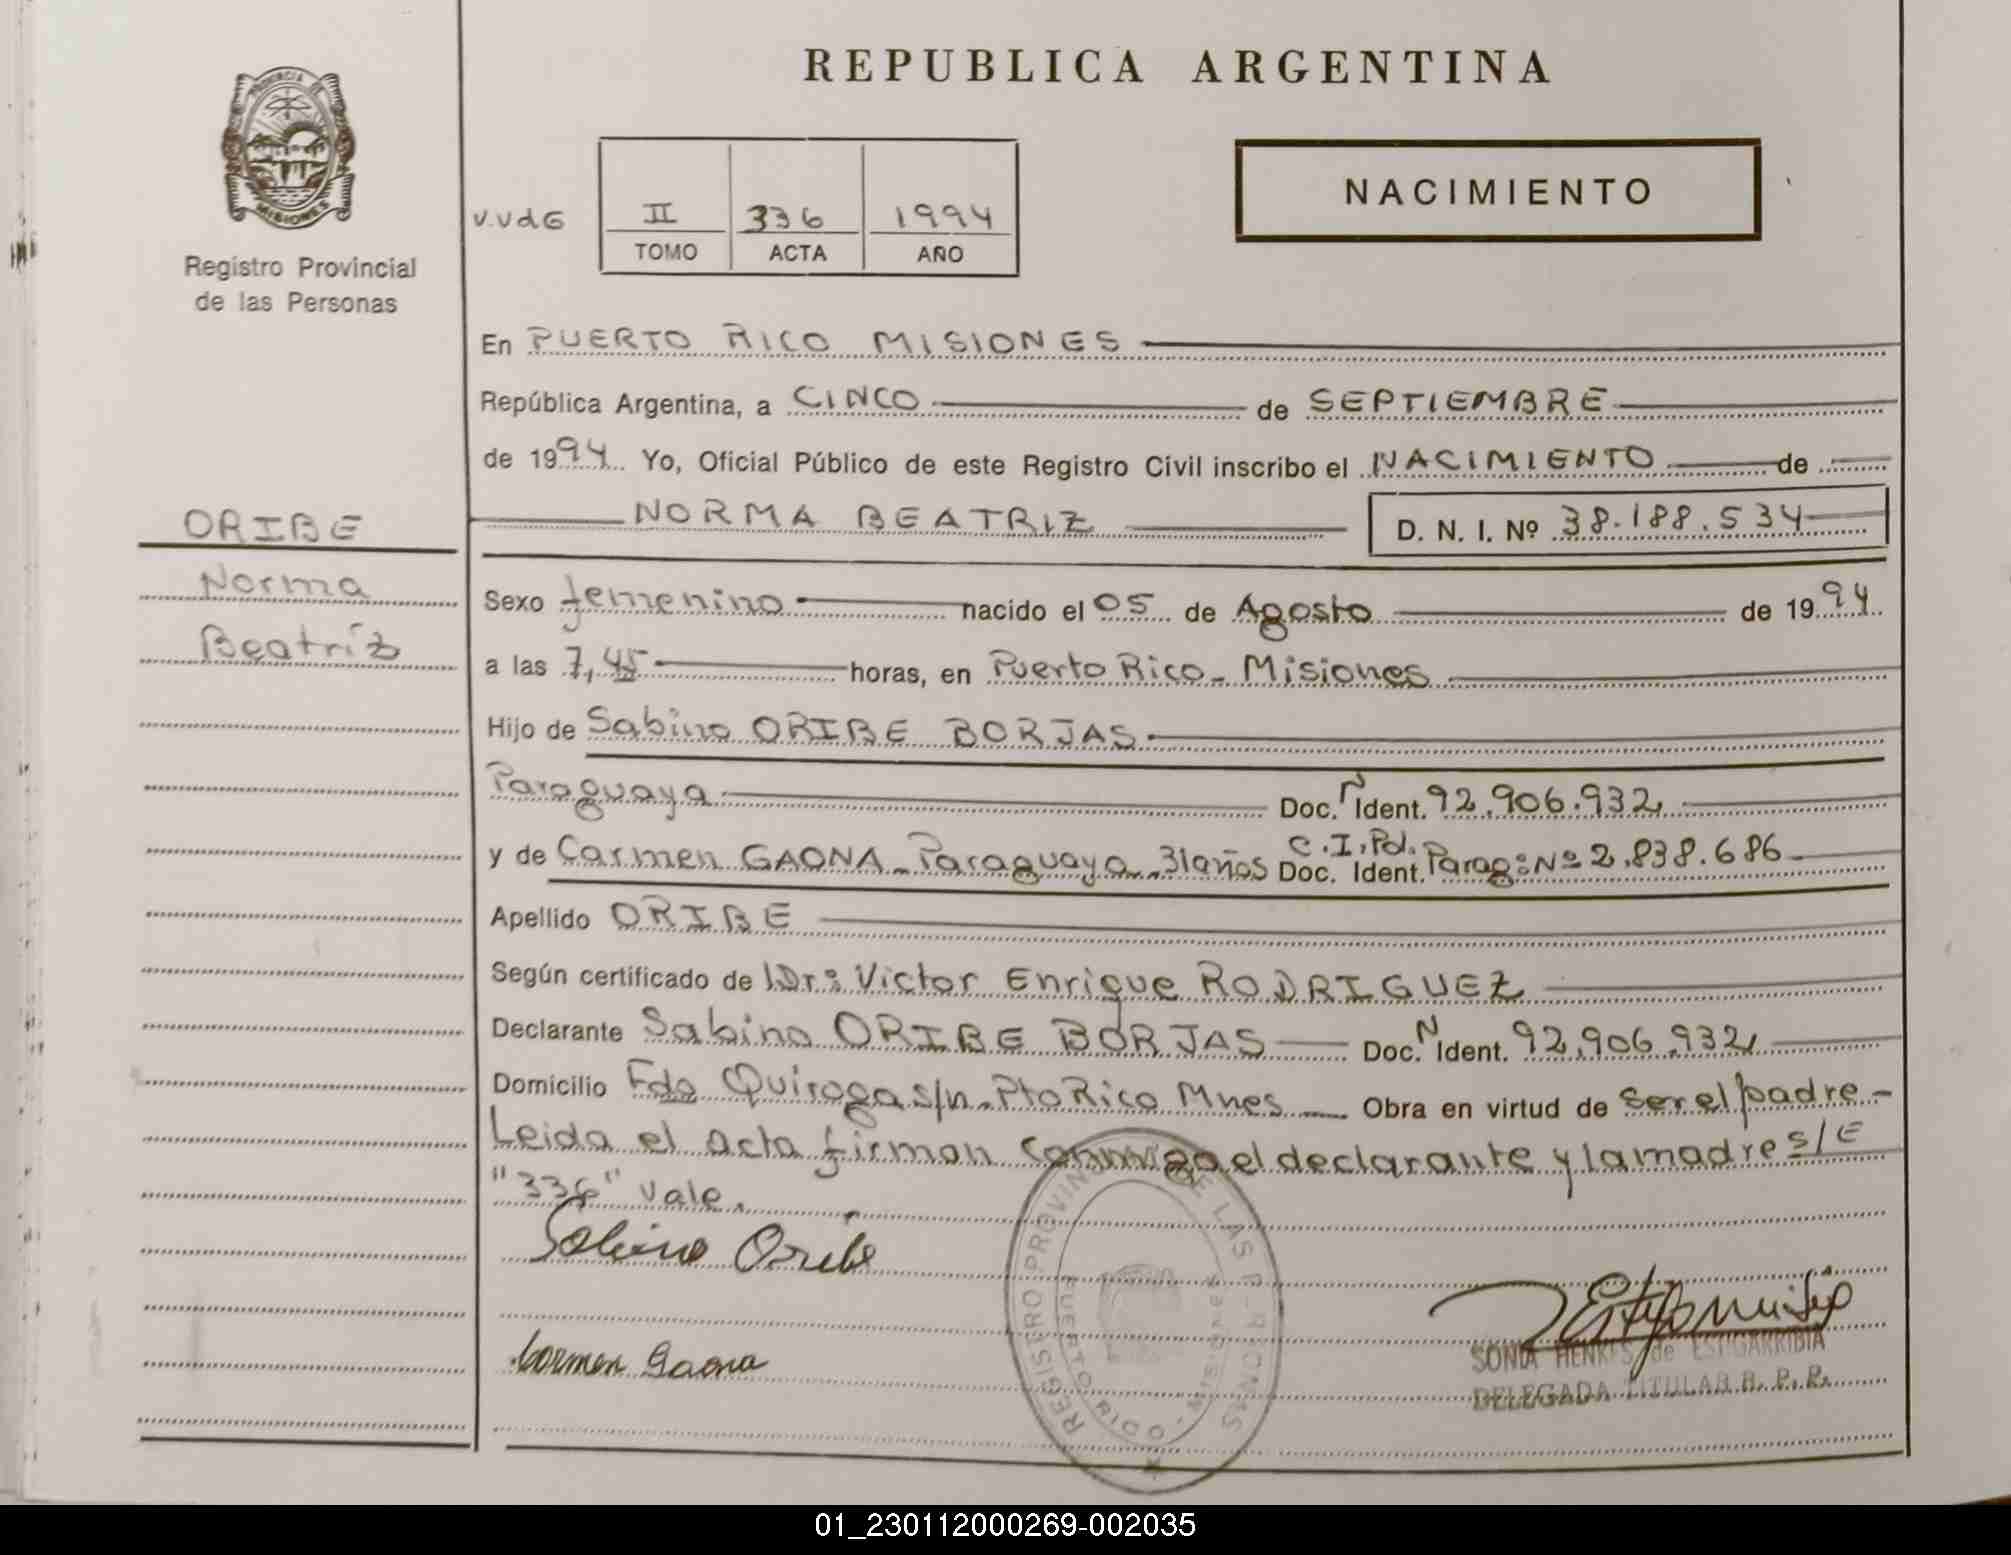 REPUBLICA ARGENTINA
PROVINCIA DE
MISIONES
Registro Provincial
de las Personas
NACIMIENTO
V.VdG
II 336 1994
TOMO ACTA AÑO
En PUERTO RICO MISIONES
República Argentina, a CINCO de SEPTIEMBRE
de 1994 Yo, Oficial Público de este Registro Civil inscribo el NACIMIENTO de
NORMA BEATRIZ D. N. I. Nº 38.188.534
ORIBE
Norma
Beatríz
Sexo femenino nacido el 05 de Agosto de 1994
a las 7,45 horas, en Puerto Rico - Misiones
Hijo de Sabino ORIBE BORJAS
Paraguaya Doc. N Ident. 92.906.932
y de Carmen GAONA - Paraguaya - 31 años C.I.Pol. Doc. Ident. Parag: Nº 2.838.686
Apellido ORIBE
Según certificado de Dr: Victor Enrique RODRIGUEZ
Declarante Sabino ORIBE BORJAS Doc. N Ident. 92.906.932
Domicilio Fdo Quiroga s/n - Pto Rico Mnes Obra en virtud de ser el padre -
Leida el acta firman conmigo el declarante y la madre s/E
"336" Vale.
Sabino Oribe
Carmen Gaona
REGISTRO PROVINCIAL DE LAS PERSONAS
PUERTO RICO - MISIONES
SONIA HENKES de ESTIGARRIBIA
DELEGADA TITULAR R. P. P.
01_230112000269-002035